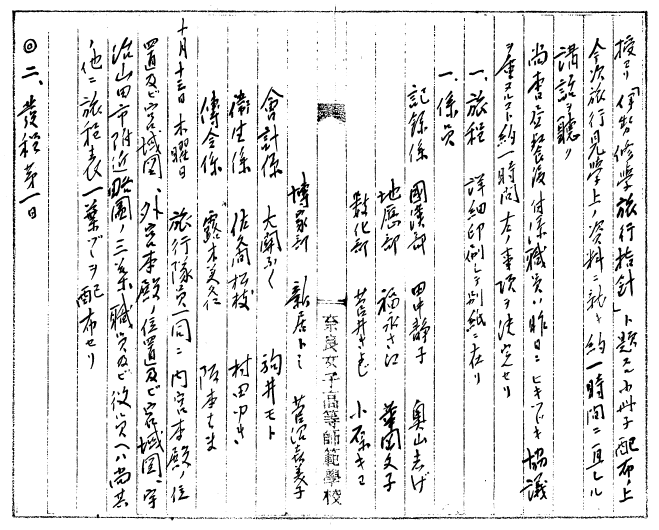 授ケリ「伊勢修學旅行指針」ト題スル小冊子配布ノ上
今次旅行見學上ノ資料ニ就キ約一時間ニ亘レル
講説ヲ聽ク
尚晝食後付添職員ハ昨日ニヒキツヾキ協議
ヲ重ヌルコト約一時間左ノ事項ヲ決定セリ
一、旅程 詳細印刷シテ別紙ニ在リ
一、係員
記録係 國漢部 田中靜子 奥山志げ
地歴部 福永さに 文子
数化部 小原キヨ
奈良女子高等師範學校
博家部 新居トミ 菅沼喜美子
會計係 駒井モト
衛生係 佐々高松枝 村田ゆき
傳令係
十月十三日 木曜日 旅行隊員一同ニ内宮本殿ノ位
置及ビ宮域図、外宮本殿ノ位置及ビ宮域図、宇
治山田市附近略圖ノ三葉職員及ビ役員ヘハ尚其
ノ他ニ旅程表一葉ヅヽヲ配布セリ
◎二、發程第一日